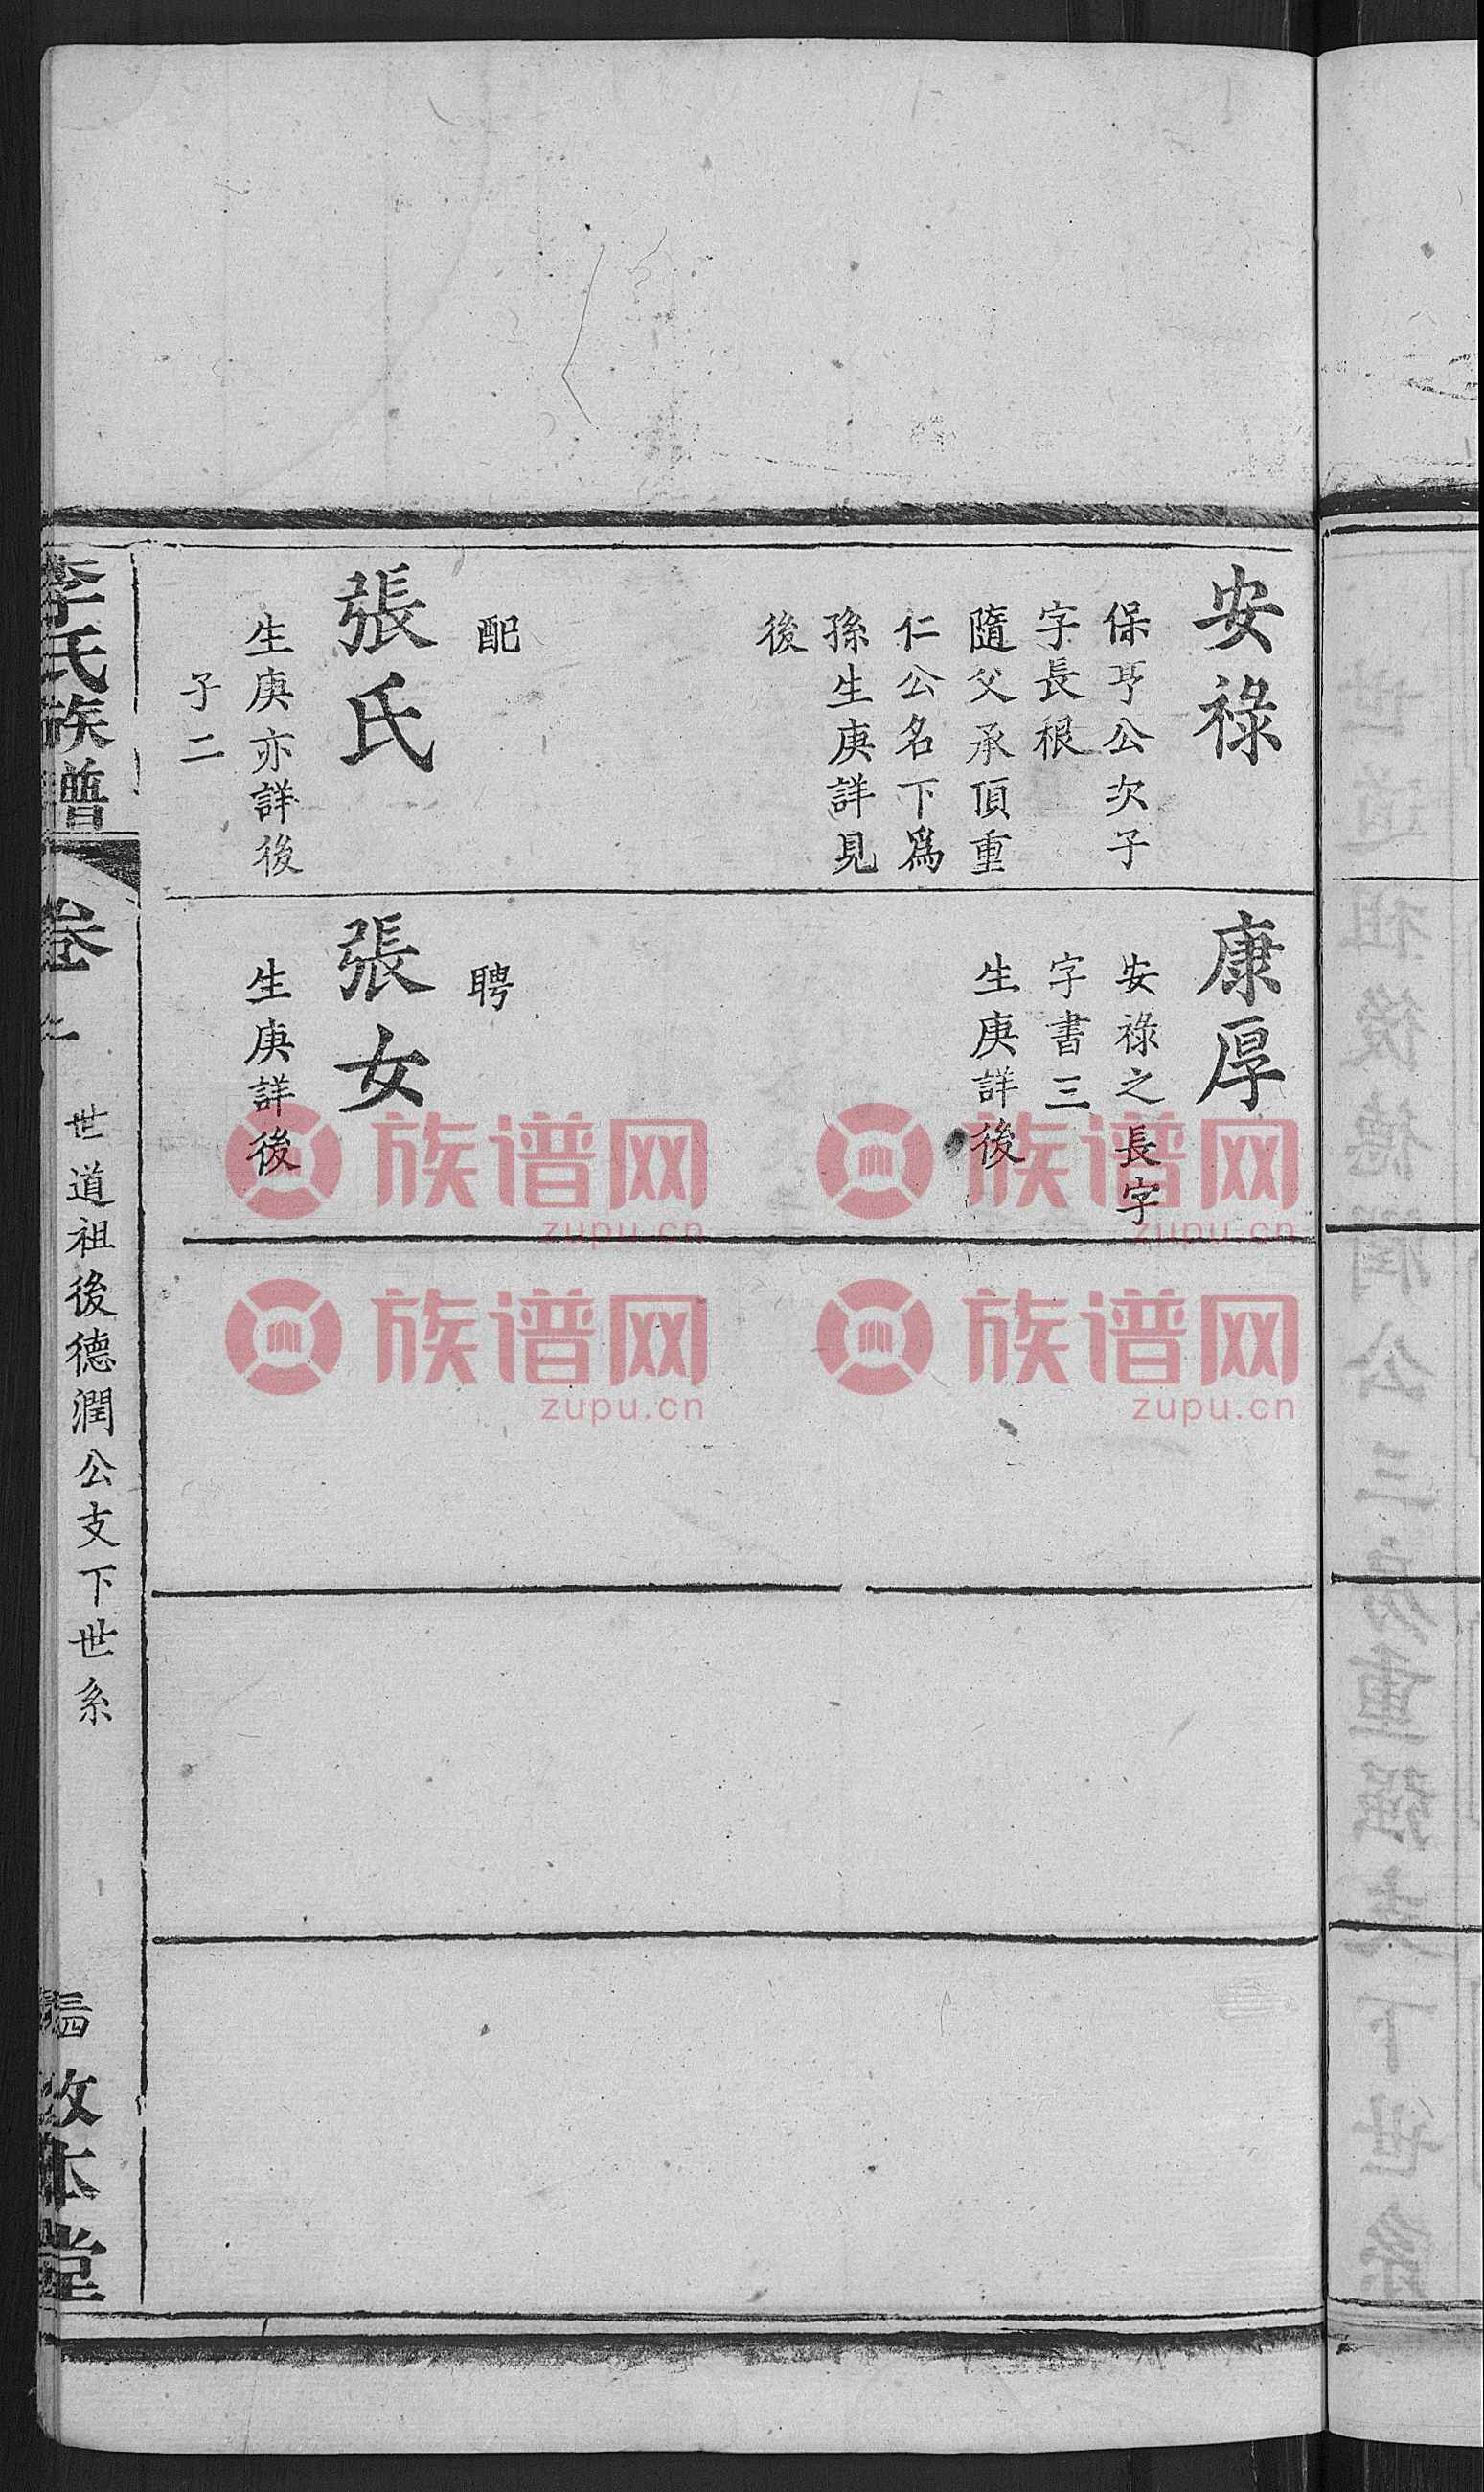 安祿
保亨公次子
字長根
隨父承頂重
仁公名下爲
孫生庚詳見
後
配
張氏
生庚亦詳後
子二
康厚
安祿之長字
字書三
生庚詳後
聘
張女
生庚詳後
李氏族譜
卷
世道祖後德潤公支下世系
本堂
族谱网
zupu.cn
族谱网
zupu.cn
族谱网
zupu.cn
族谱网
zupu.cn